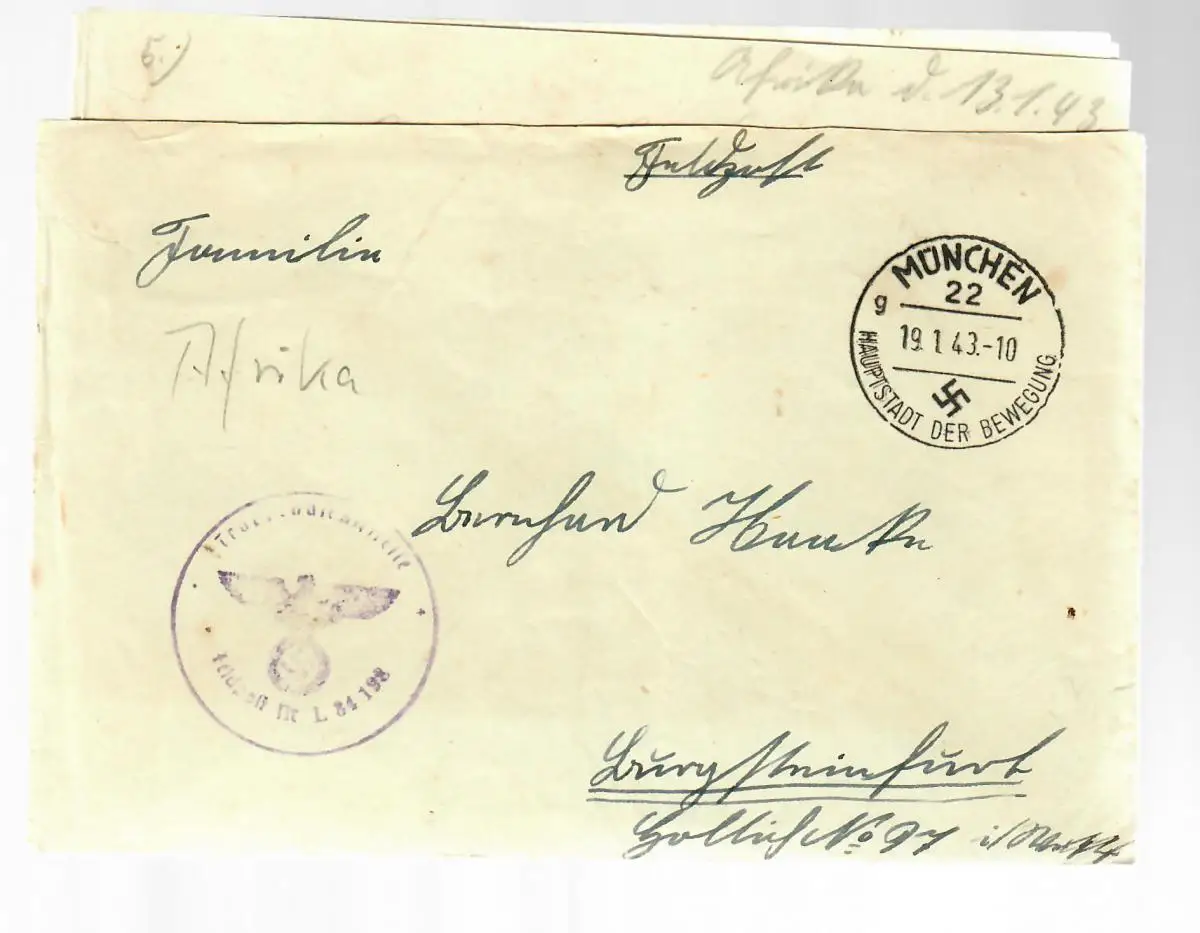 5.)
Afrika d. 13.1.43
Feldpost
Familie
MÜNCHEN
22
g
19.1.43.-10
HAUPTSTADT DER BEWEGUNG
Afrika
Bernhard Hanke
Feldpost Nr L 34 198
Burgsteinfurt
Hollich No 97 i/Westf